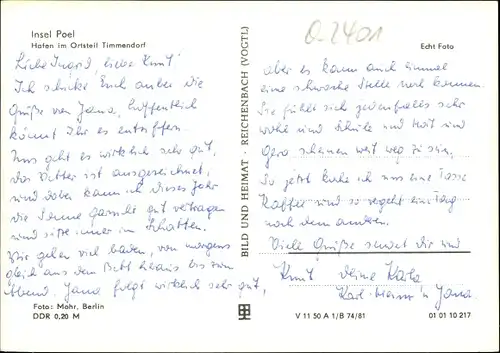 Insel Poel
Hafen im Ortsteil Timmendorf
Liebe Ingrid, liebe Knut!
Ich schicke Euch anbei die
Grüße von Jana, hoffentlich
könnt Ihr es entziffern.
Uns geht es wirklich sehr gut,
das Wetter ist ausgezeichnet,
und dabei kann ich dieses Jahr
die Sonne gar nicht gut vertragen
und sitze immer im Schatten.
Wir gehen viel baden, von morgens
gleich aus dem Bett heraus bis zum
Abend. Jana folgt wirklich sehr gut,
Foto: Mohr, Berlin
DDR 0,20 M
BILD UND HEIMAT · REICHENBACH (VOGTL)
O-2401
Echt Foto
aber es kann auch einmal
eine schwache Stelle noch kommen.
Sie fühlt sich jedenfalls sehr
wohl und Schule und Hort und
Gera scheinen weit weg zu sein.
So jetzt koche ich uns eine Tasse
Kaffee und so vergeht ein Tag
nach dem anderen.
Viele Grüße sendet Dir und
Knut Deine Karla
Karl-Heinz u. Jana.
V 11 50 A 1/B 74/81
01 01 10 217